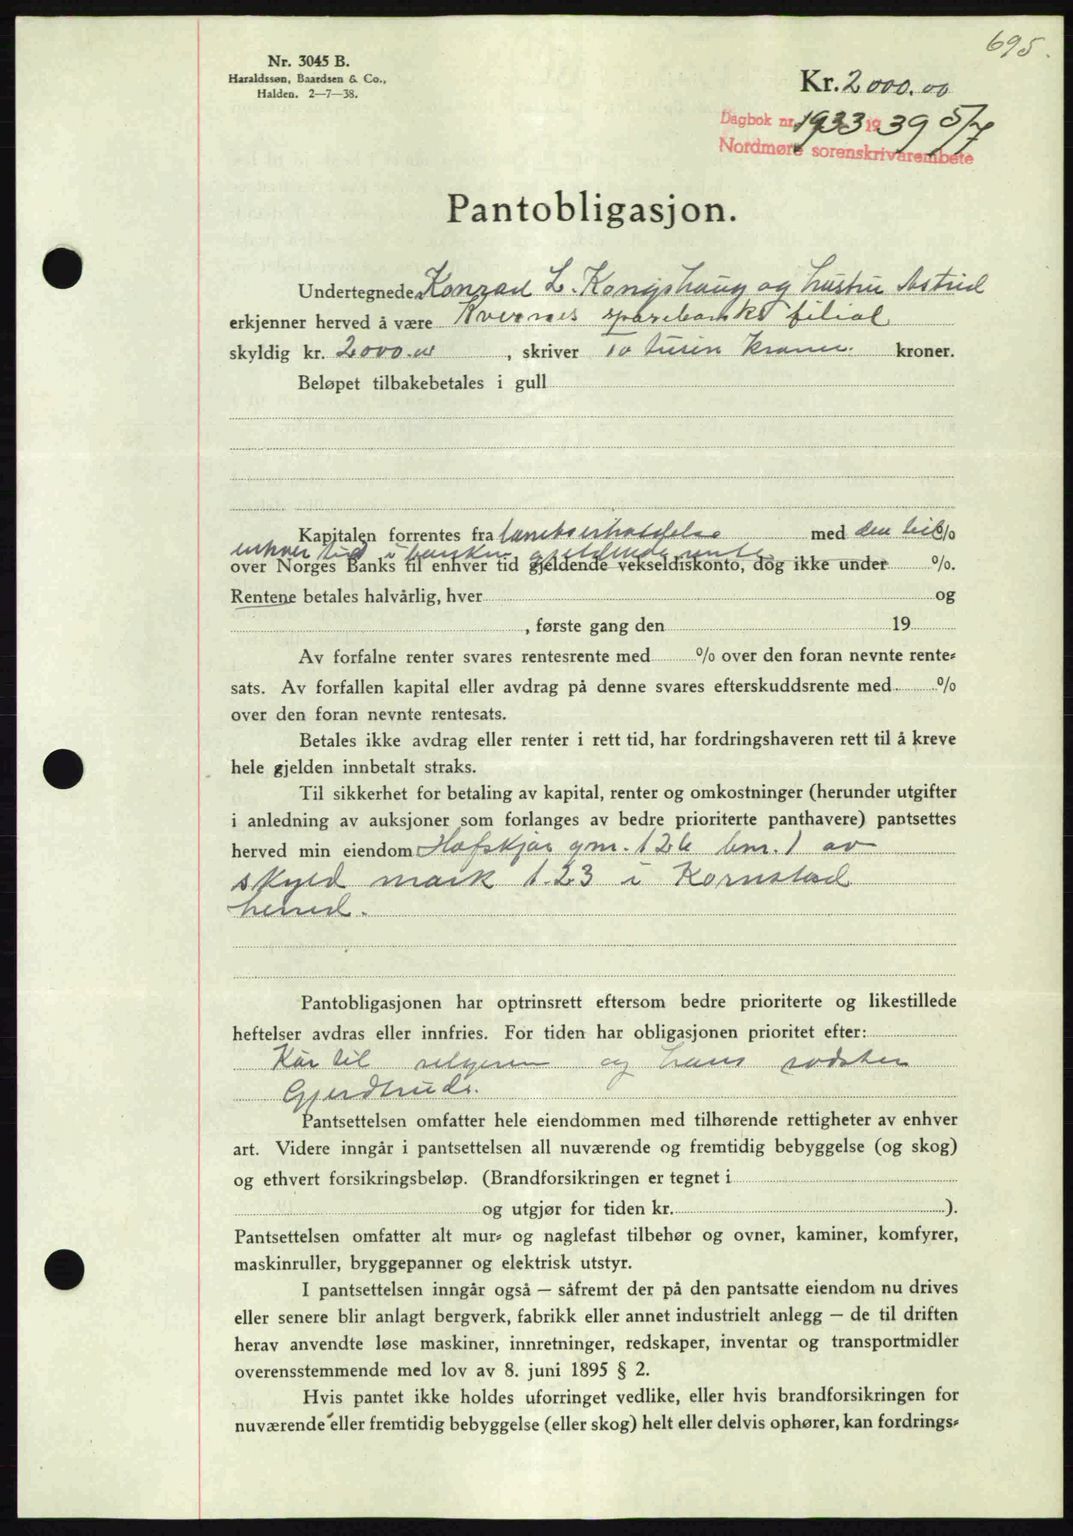 695.
Nr. 3045 B.
Haraldssøn, Baardsen & Co.,
Halden. 2—7—38.
Kr. 2000.00
Dagbok nr. 1933 1939 5/7
Nordmøre sorenskrivarembete
Pantobligasjon.
Undertegnede Konrad L. Kongshaug og hustru Astrid
erkjenner herved å være Kvernes sparebanks filial
skyldig kr. 2000.00, skriver To tusen kroner. kroner.
Beløpet tilbakebetales i gull
Kapitalen forrentes fra lånets erholdelse med den til %
enhver tid i banken gjeldende rente
over Norges Banks til enhver tid gjeldende vekseldiskonto, dog ikke under %.
Rentene betales halvårlig, hver og
, første gang den 19
Av forfalne renter svares rentesrente med % over den foran nevnte rente-
sats. Av forfallen kapital eller avdrag på denne svares efterskuddsrente med %
over den foran nevnte rentesats.
Betales ikke avdrag eller renter i rett tid, har fordringshaveren rett til å kreve
hele gjelden innbetalt straks.
Til sikkerhet for betaling av kapital, renter og omkostninger (herunder utgifter
i anledning av auksjoner som forlanges av bedre prioriterte panthavere) pantsettes
herved min eiendom Hafskjær gnr. 126 bnr. 1 av
skyld mark 1.23 i Kornstad
herred.
Pantobligasjonen har optrinsrett eftersom bedre prioriterte og likestillede
heftelser avdras eller innfries. For tiden har obligasjonen prioritet efter:
Kår til selgeren og hans søster
Gjerdtrude.
Pantsettelsen omfatter hele eiendommen med tilhørende rettigheter av enhver
art. Videre inngår i pantsettelsen all nuværende og fremtidig bebyggelse (og skog)
og ethvert forsikringsbeløp. (Brandforsikringen er tegnet i
og utgjør for tiden kr. ).
Pantsettelsen omfatter alt mur- og naglefast tilbehør og ovner, kaminer, komfyrer,
maskinruller, bryggepanner og elektrisk utstyr.
I pantsettelsen inngår også — såfremt der på den pantsatte eiendom nu drives
eller senere blir anlagt bergverk, fabrikk eller annet industrielt anlegg — de til driften
herav anvendte løse maskiner, innretninger, redskaper, inventar og transportmidler
overensstemmende med lov av 8. juni 1895 § 2.
Hvis pantet ikke holdes uforringet vedlike, eller hvis brandforsikringen for
nuværende eller fremtidig bebyggelse (eller skog) helt eller delvis ophører, kan fordrings-